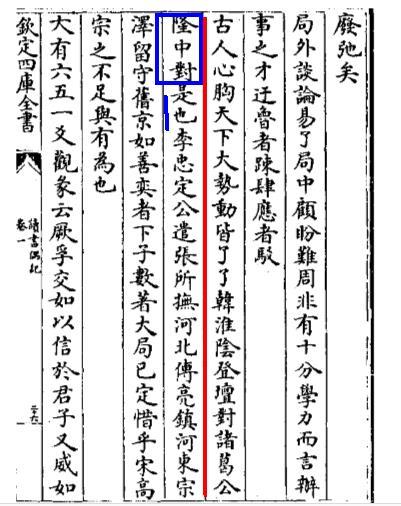 廢弛矣
局外談論易了局中顧盼難周非有十分學力而言辦
事之才迂魯者踈肆應者駁
古人心胸天下大勢動皆了了韓淮陰登壇對諸葛公
隆中對是也李忠定公遣張所撫河北傅亮鎮河東宗
澤留守舊京如善奕者下子數著大局已定惜乎宋高
宗之不足與有為也
大有六五一爻觀象云厥孚交如以信於君子又威如
欽定四庫全書
讀書偶記
卷一
二十六